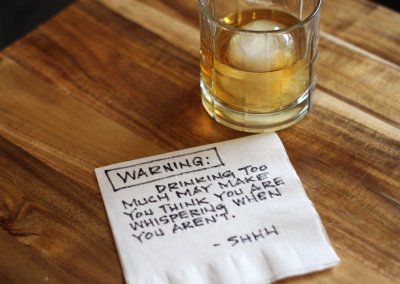 WARNING:
DRINKING TOO
MUCH MAY MAKE
YOU THINK YOU ARE
WHISPERING WHEN
YOU AREN'T.
- SHHH